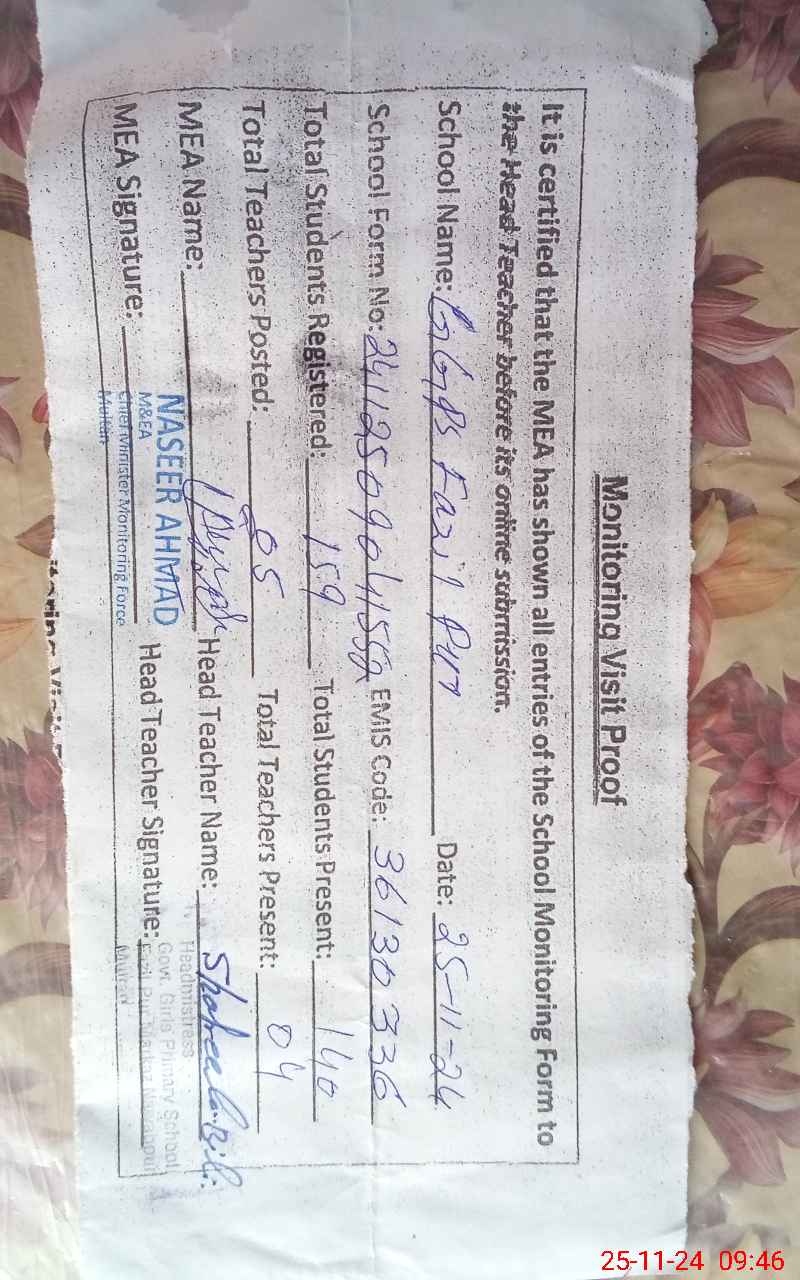 Monitoring Visit Proof
It is certified that the MEA has shown all entries of the School Monitoring Form to
the Head Teacher before its online submission.
School Name: GGPS Fazil Pur Date: 25-11-24
School Form No: EMIS Code: 36130336
Total Students Registered: 159 Total Students Present: 140
Total Teachers Posted: 05 Total Teachers Present: 04
MEA Name: Head Teacher Name: Shaheela Bibi
NASEER AHMAD
M&EA
Chief Minister Monitoring Force
Multan
Headmistress
Govt. Girls Primary School
Fazil Pur
Multan
MEA Signature: Head Teacher Signature:
25-11-24 09:46